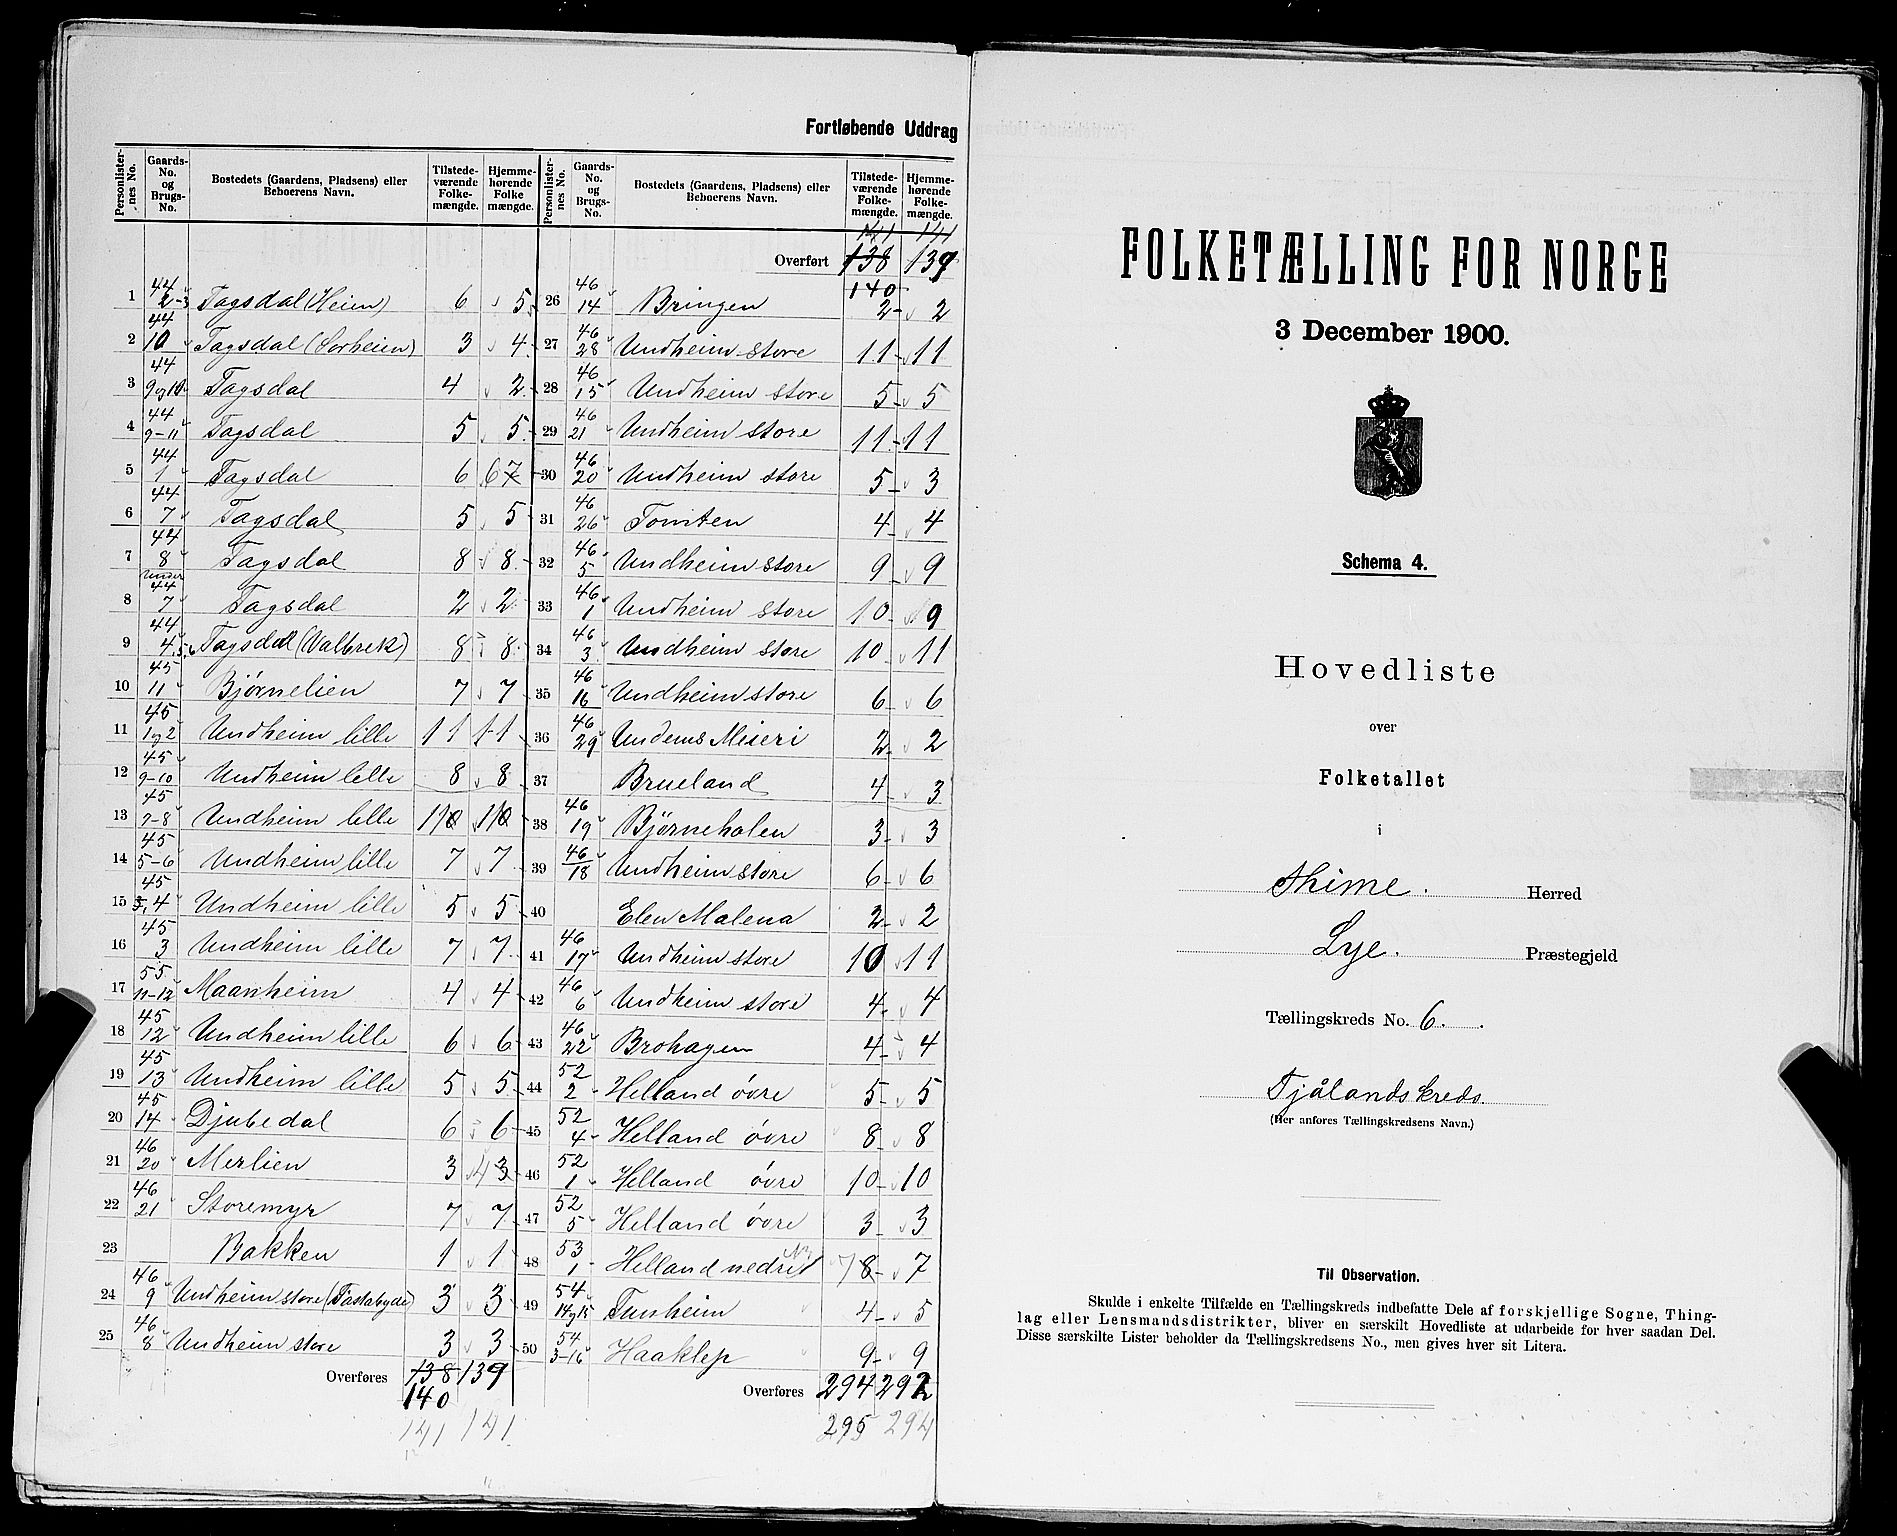 Fortløbende Uddrag
Personlisternes No. | Gaards-No. og Brugs-No. | Bostedets (Gaardens, Pladsens) eller Beboerens Navn. | Tilstedeværende Folkemængde. | Hjemmehørende Folkemængde.
1 | 44 2-3 | Tagsdal (Heien) | 6 | 5
2 | 44 10 | Tagsdal (Sørheien) | 3 | 4
3 | 44 9 og 10 | Tagsdal | 4 | 2
4 | 44 9-11 | Tagsdal | 5 | 5
5 | 44 1 | Tagsdal | 6 | 6 7
6 | 44 7 | Tagsdal | 5 | 5
7 | 44 8 | Tagsdal | 8 | 8
8 | Under 44 7 | Tagsdal | 2 | 2
9 | 44 4,5,6 | Tagsdal (Valbrek) | 8 | 8
10 | 45 11 | Bjørnelien | 7 | 7
11 | 45 1 og 2 | Undheim lille | 11 | 11
12 | 45 9-10 | Undheim lille | 8 | 8
13 | 45 7-8 | Undheim lille | 110 | 110
14 | 45 5-6 | Undheim lille | 7 | 7
15 | 45 3,4 | Undheim lille | 5 | 5
16 | 45 3 | Undheim lille | 7 | 7
17 | 55 11-12 | Maanheim | 4 | 4
18 | 45 12 | Undheim lille | 6 | 6
19 | 45 13 | Undheim lille | 5 | 5
20 | 45 14 | Djubedal | 6 | 6
21 | 46 20 | Merlien | 3 | 4 3
22 | 46 21 | Storemyr | 7 | 7
23 | Bakken | 1 | 1
24 | 46 9 | Undheim store (Fastabyde) | 3 | 3
25 | 46 8 | Undheim store | 3 | 3
Overføres 138 139
140
141 141
Personlisternes No. | Gaards-No. og Brugs-No. | Bostedets (Gaardens, Pladsens) eller Beboerens Navn. | Tilstedeværende Folkemængde. | Hjemmehørende Folkemængde.
141 141
Overført 138 139
140
26 | 46 14 | Bringen | 2 | 2
27 | 46 28 | Undheim store | 11 | 11
28 | 46 15 | Undheim store | 5 | 5
29 | 46 21 | Undheim store | 11 | 11
30 | 46 20 | Undheim store | 5 | 3
31 | 46 26 | Tomten | 4 | 4
32 | 46 5 | Undheim store | 9 | 9
33 | 46 1 | Undheim store | 10 | 9
34 | 46 3 | Undheim store | 10 | 11
35 | 46 16 | Undheim store | 6 | 6
36 | 46 29 | Undems Mieeri | 2 | 2
37 | Brueland | 4 | 3
38 | 46 19 | Bjørneholen | 3 | 3
39 | 46 18 | Undheim store | 6 | 6
40 | Elen Malena | 2 | 2
41 | 46 17 | Undheim store | 10 | 11
42 | 46 6 | Undheim store | 4 | 4
43 | 46 22 | Brohagen | 4 | 4
44 | 52 2 | Helland øvre | 5 | 5
45 | 52 4 | Helland øvre | 8 | 8
46 | 52 1 | Helland øvre | 10 | 10
47 | 52 5 | Helland øvre | 3 | 3
48 | 53 1 | Helland nedre | 7 8 | 7
49 | 54 14 og 15 | Tunheim | 4 | 5
50 | 54 3-16 | Haaklep | 9 | 9
Overføres 294 292
295 294
FOLKETÆLLING FOR NORGE
3 December 1900.
Schema 4.
Hovedliste
over
Folketallet
i
Thime. Herred
Lye. Præstegjeld
Tællingskreds No. 6.
Tjålandskreds.
(Her anføres Tællingskredsens Navn.)
Til Observation.
Skulde i enkelte Tilfælde en Tællingskreds indbefatte Dele af forskjellige Sogne, Thing-
lag eller Lensmandsdistrikter, bliver en særskilt Hovedliste at udarbeide for hver saadan Del.
Disse særskilte Lister beholder da Tællingskredsens No., men gives hver sit Litera.